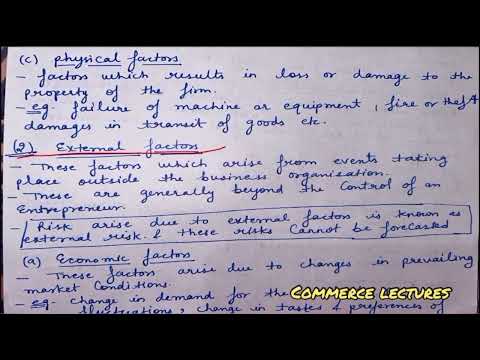 (c) Physical factors
- Factors which results in loss or damage to the
property of the firm.
- eg. failure of machine or equipment, fire or theft
damages in transit of goods etc.
(2) External factors
- These factors which arise from events taking
place outside the business organisation.
- These are generally beyond the control of an
Entrepreneur.
- Risk arise due to external factors is known as
external risk. & these risks cannot be forecasted
(a) Economic factors
- These factors arise due to changes in prevailing
market Conditions.
- eg. change in demand for the
fluctuations, change in tastes & preferences of
COMMERCE LECTURES